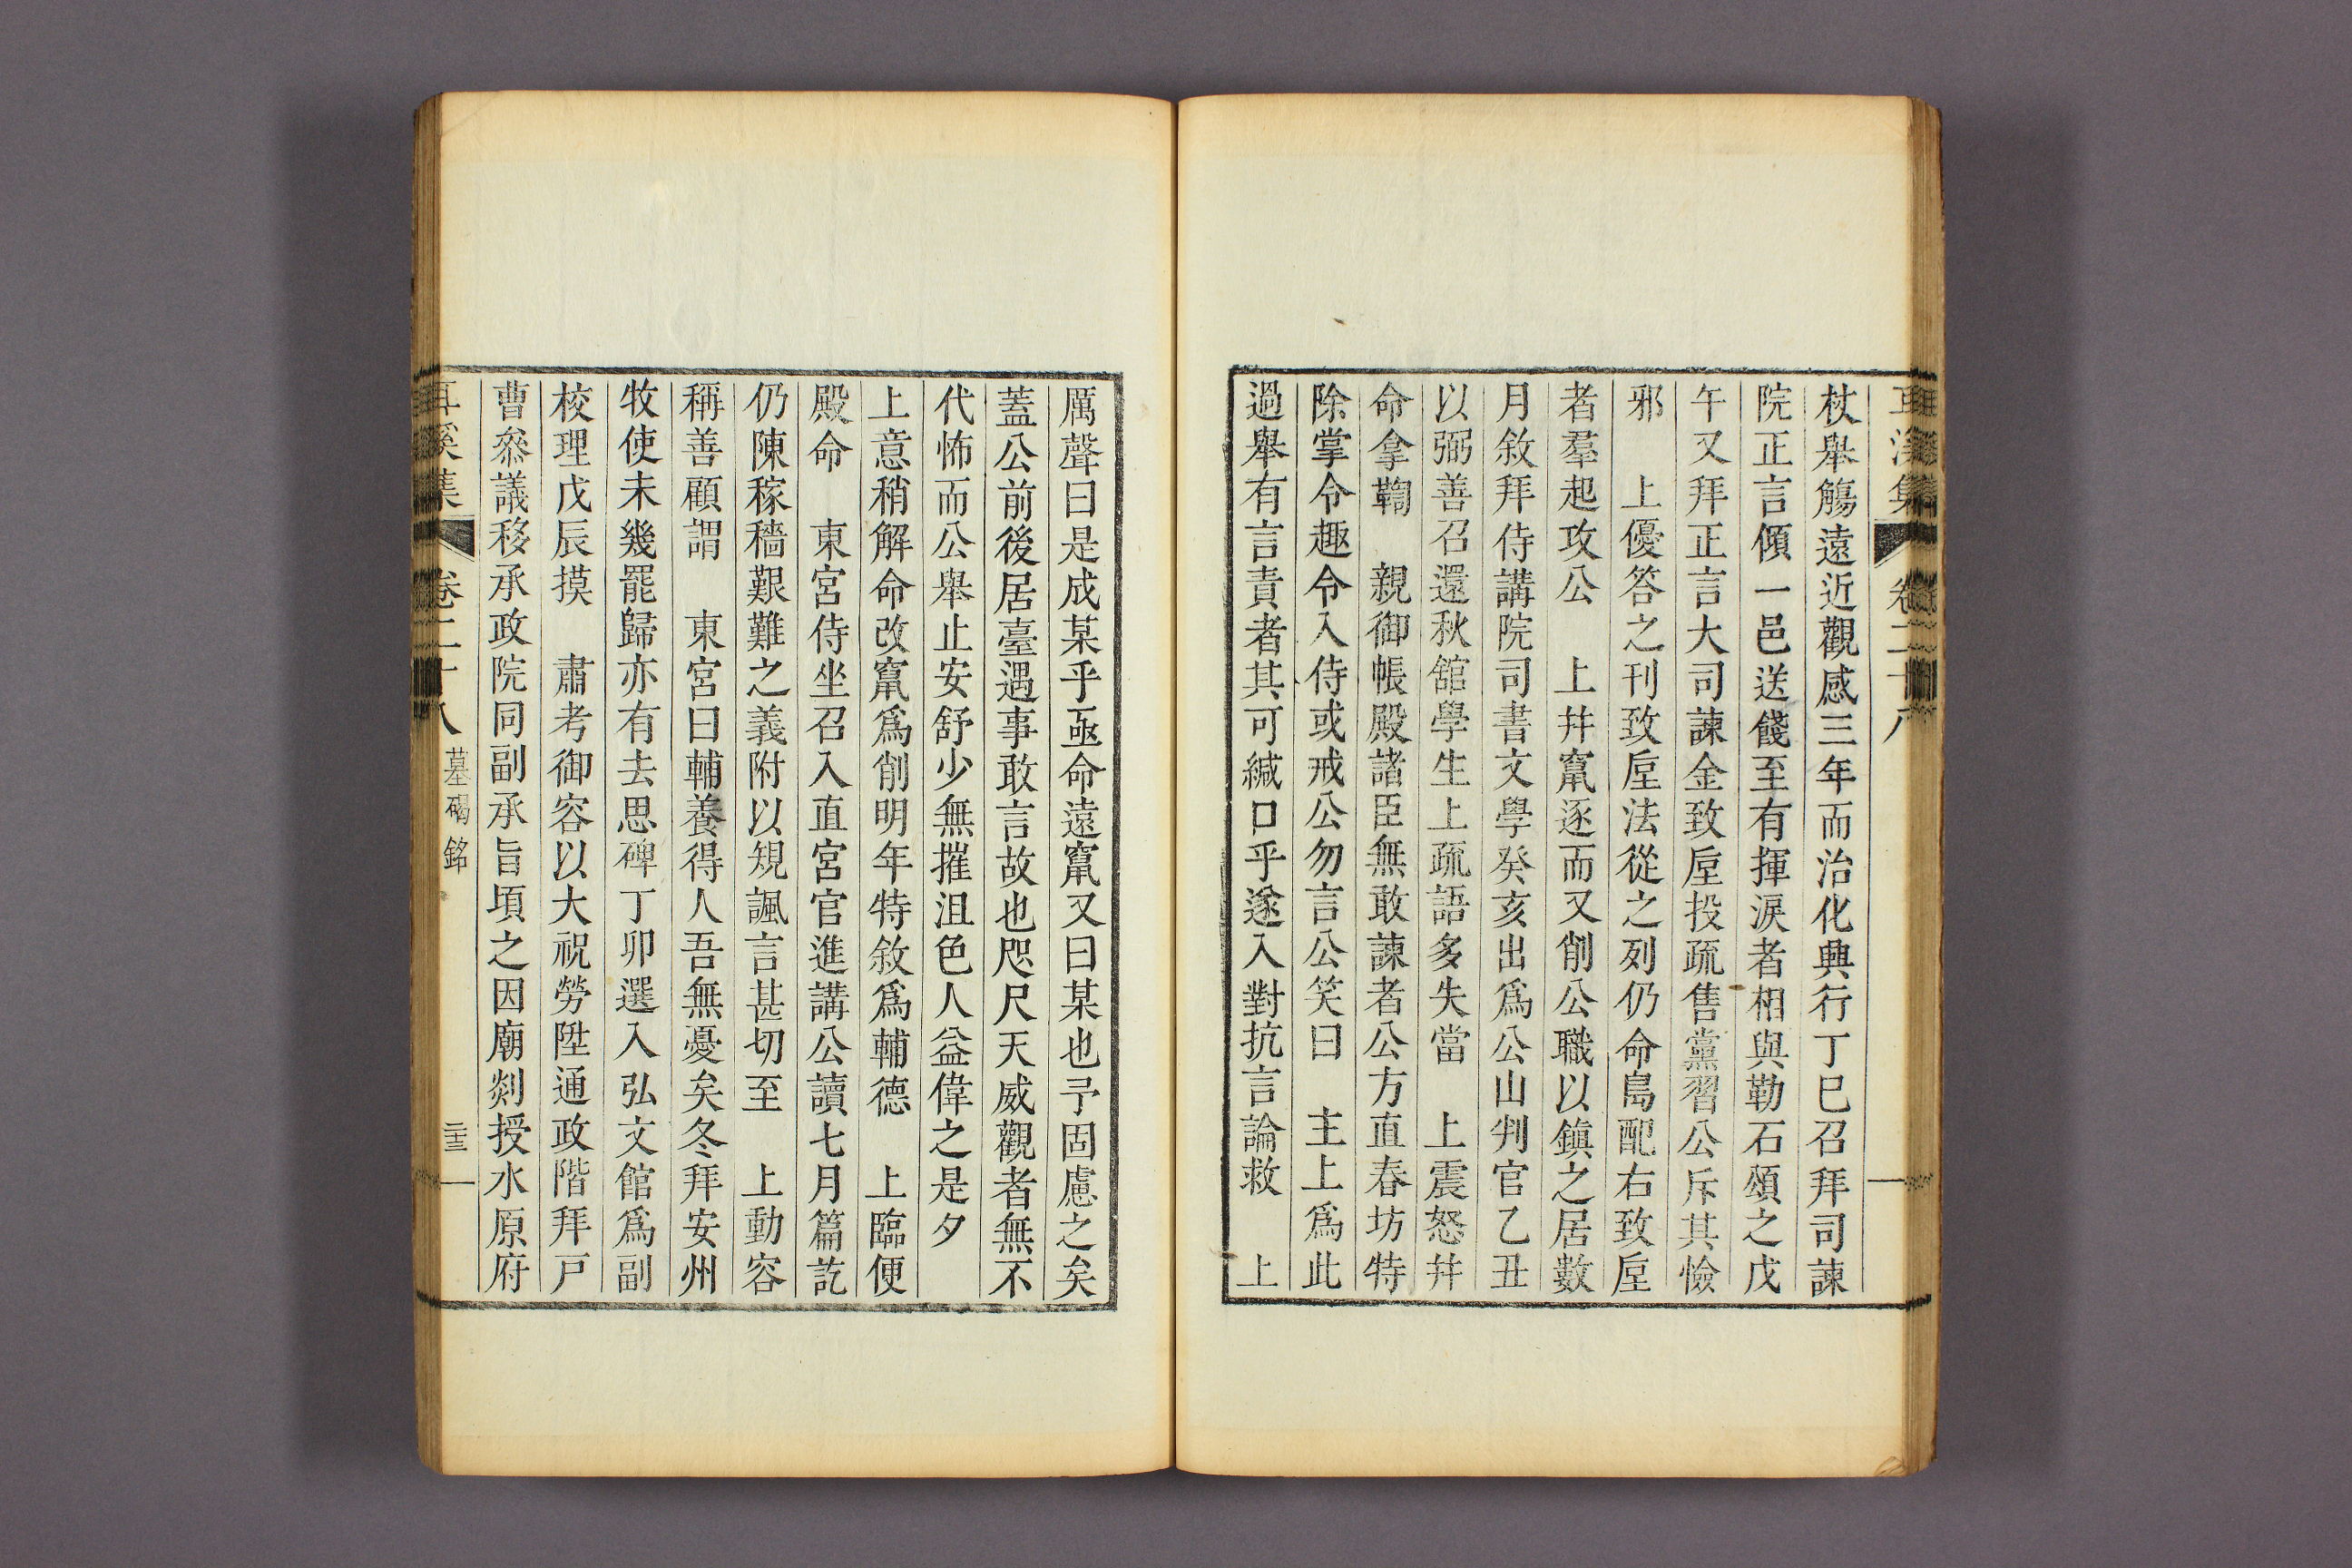 耳溪集 卷二十八
杖舉觴遠近觀感三年而治化興行丁巳召拜司諫
院正言傾一邑送餞至有揮淚者相與勒石頌之戊
午又拜正言大司諫金致垕投疏售黨習公斥其憸
邪　上優答之刊致垕法從之列仍命島配右致垕
者羣起攻公　上幷竄逐而又削公職以鎮之居數
月敘拜侍講院司書文學癸亥出爲公山判官乙丑
以弼善召還秋舘學生上疏語多失當　上震怒幷
命拿鞫　親御帳殿諸臣無敢諫者公方直春坊特
除掌令趣令入侍或戒公勿言公笑曰　主上爲此
過舉有言責者其可緘口乎遂入對抗言論救　上
厲聲曰是成某乎亟命遠竄又曰某也予固慮之矣
蓋公前後居臺遇事敢言故也咫尺天威觀者無不
代怖而公舉止安舒少無摧沮色人益偉之是夕
上意稍解命改竄爲削明年特敘爲輔德　上臨便
殿命　東宮侍坐召入直宮官進講公讀七月篇訖
仍陳稼穡艱難之義附以規諷言甚切至　上動容
稱善顧謂　東宮曰輔養得人吾無憂矣冬拜安州
牧使未幾罷歸亦有去思碑丁卯選入弘文館爲副
校理戊辰摸　肅考御容以大祝勞陞通政階拜戶
曹叅議移承政院同副承旨頃之因廟剡授水原府
耳溪集 卷二十八 墓碣銘 二十三